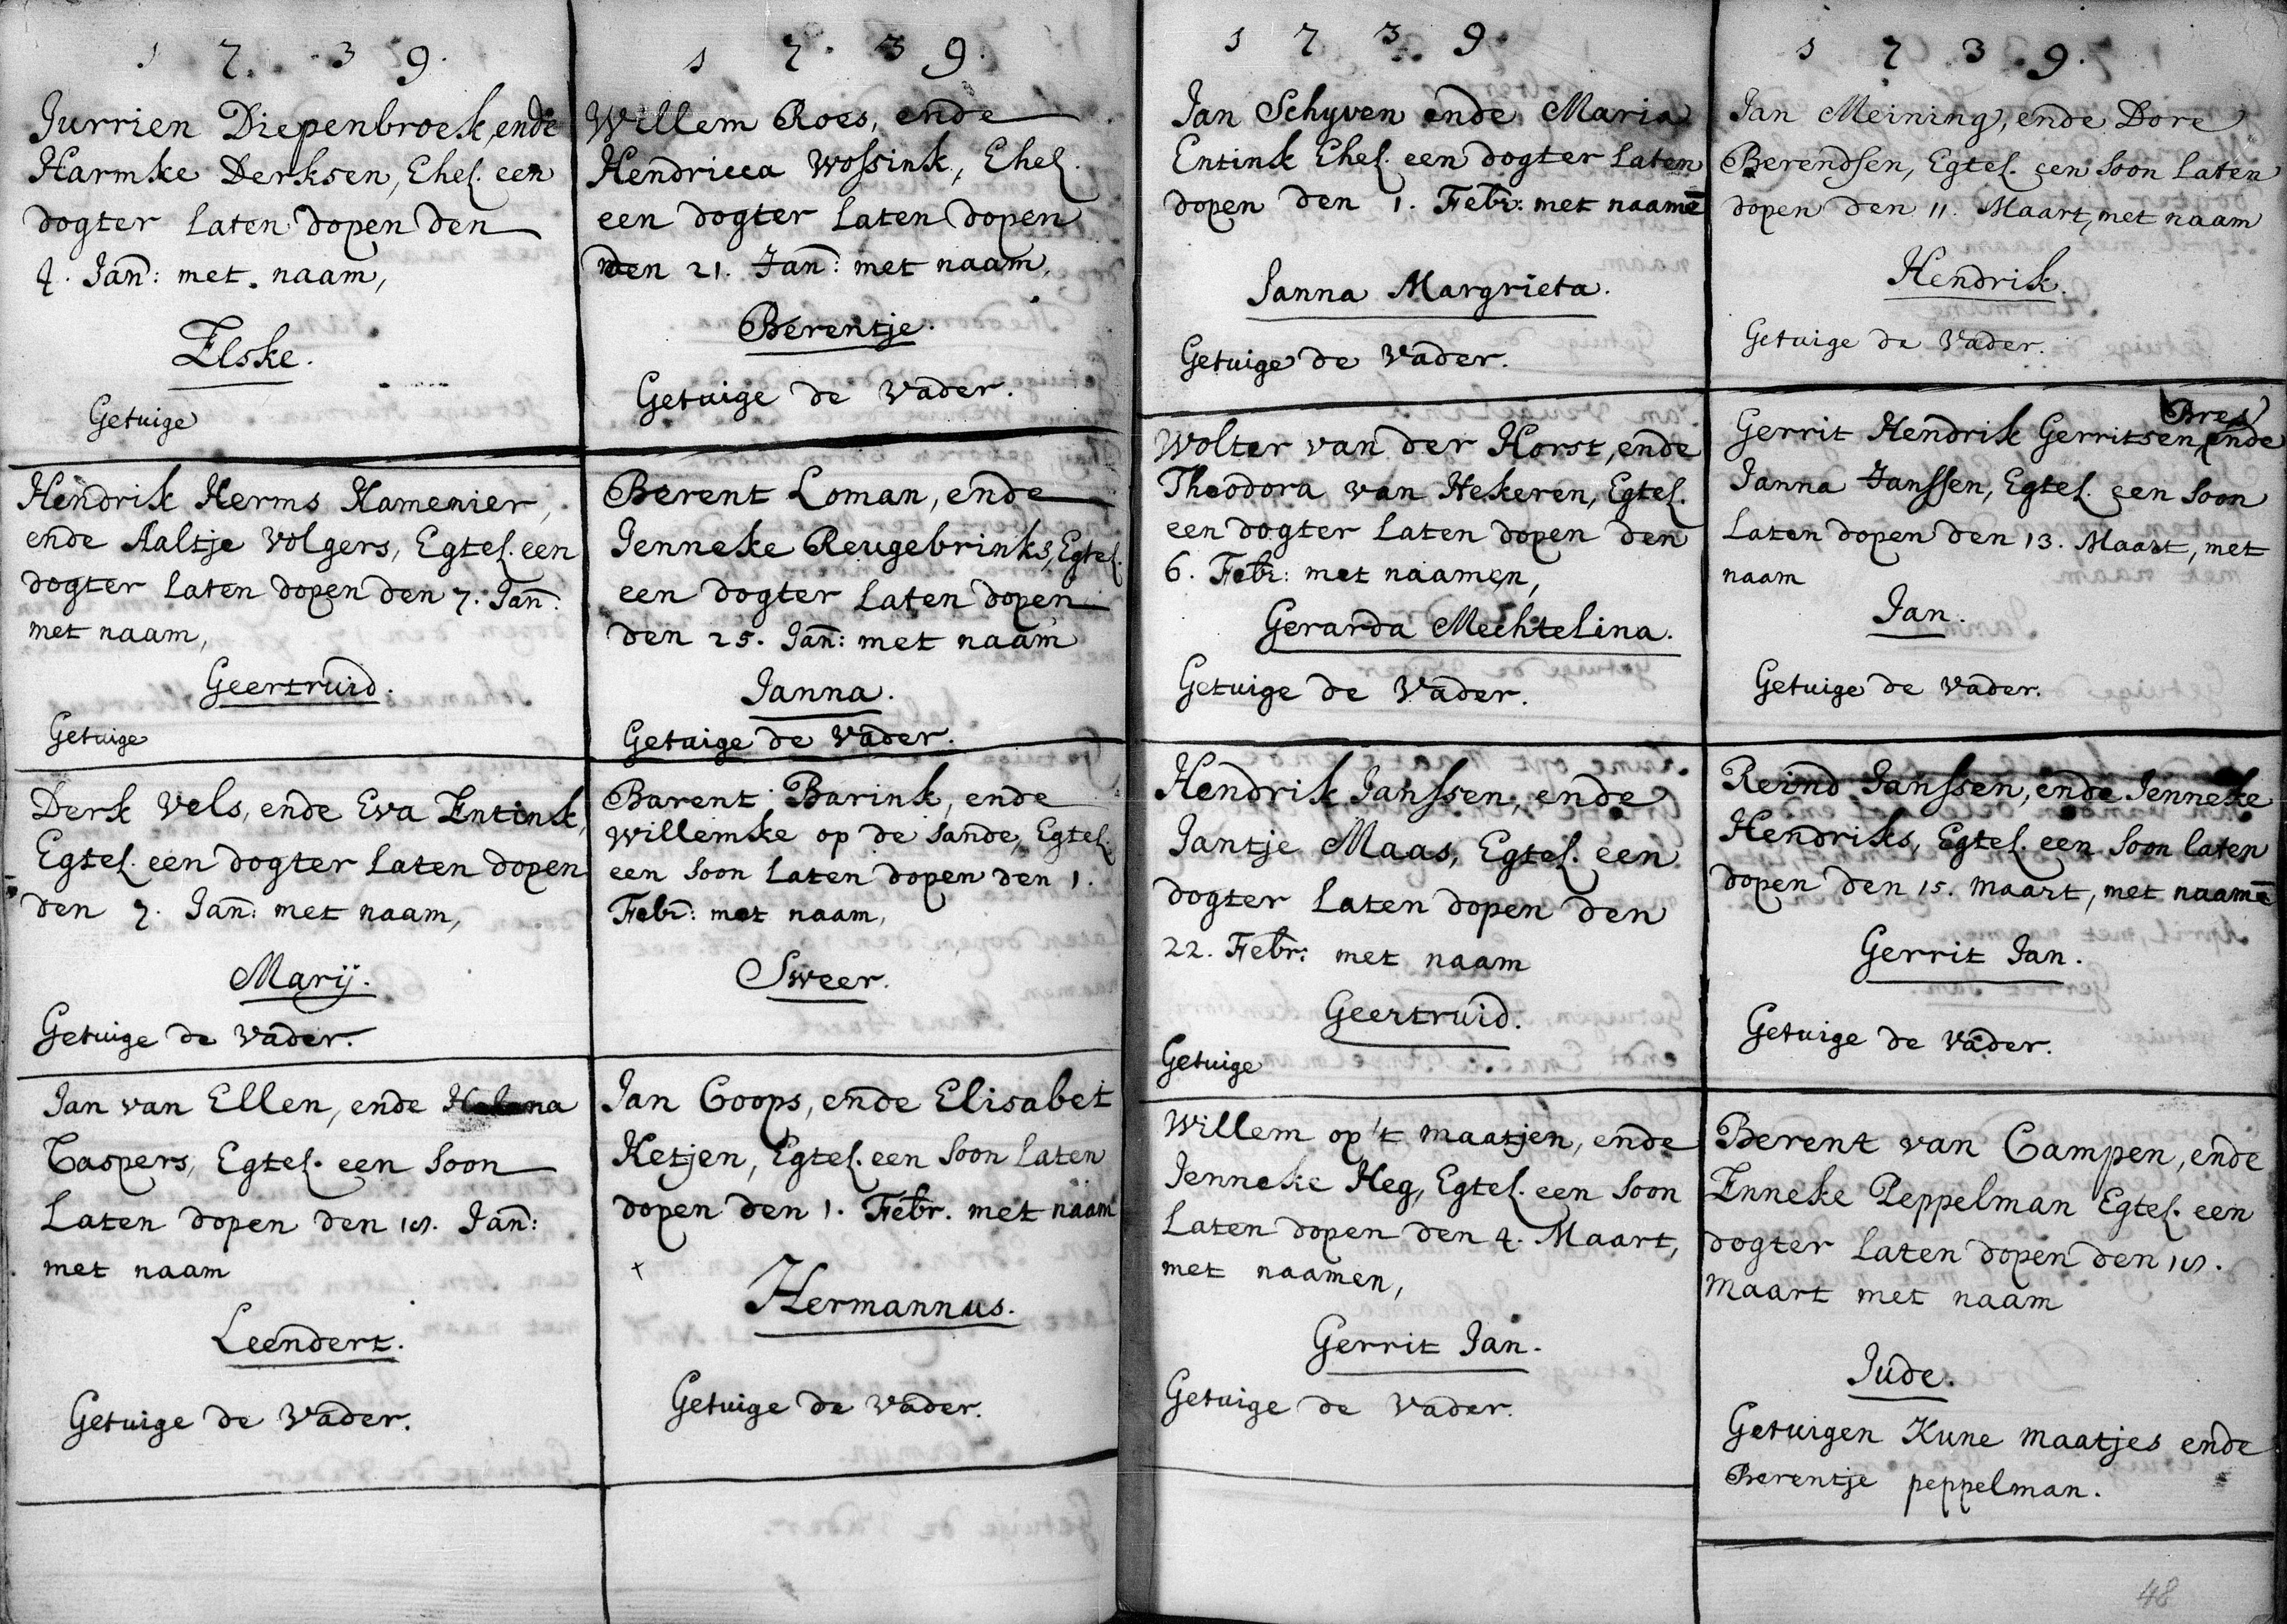 1 7. 3 9.
Jurrien Diepenbroek, ende
Harmke Derksen, Ehel. een
dogter laten dopen den
4. Jan̄: met naam,
Elske.
Getuige
Hendrik Herms Kamenier,
ende Aaltje Volgers, Egtel. een
dogter laten dopen den 7. Jan̄:
met naam,
Geertruid.
Getuige
Derk Vels, ende Eva Entink,
Egtel. een dogter laten dopen
den 7. Jan̄: met naam,
Marij.
Getuige de Vader.
Jan van Ellen, ende
Caspers, Egtel. een soon
laten dopen den 18. Jan̄:
met naam
Leendert.
Getuige de Vader.
1 7. 3 9.
Willem Roes, ende
Hendricca Wossink, Ehel.
een dogter laten dopen
den 21. Jan̄: met naam,
Berentje.
Getuige de Vader.
Berent Loman, ende
Jenneke Reugebrinks, Egtel.
een dogter laten dopen
den 25. Jan̄: met naam
Janna.
Getuige de Vader.
Barent Barink, ende
Willemke op de Sande, Egtel.
een soon laten dopen den 1.
Febr̄: met naam,
Sweer.
Getuige de Vader.
Jan Coops, ende Elisabet
Ketjen, Egtel. een soon laten
dopen den 1. Febr. met naam
+
Hermannus.
Getuige de Vader.
1 7 3 9.
Jan Schyven ende Maria
Entink Ehel. een dogter laten
dopen den 1. Febr: met naamē
Janna Margrieta.
Getuige de Vader.
Wolter van der Horst, ende
Theodora van Hekeren, Egtel.
een dogter laten dopen den
6. Febr: met naamen,
Gerarda Mechtelina.
Getuige de Vader.
Hendrik Janssen, ende
Jantje Maas, Egtel. een
dogter laten dopen den
22. Febr: met naam
Geertruid.
Getuige
Willem op't maatjen, ende
Jenneke Heg, Egtel. een soon
laten dopen den 4. Maart,
met naamen,
Gerrit Jan.
Getuige de Vader.
1 7 3 9.
Jan Meining, ende Dore
Berendsen, Egtel. een soon laten
dopen den 11. Maart, met naam
Hendrik.
Getuige de Vader.
Bres
Gerrit Hendrik Gerritsen, ende
Janna Janssen, Egtel. een soon
laten dopen den 13. Maart, met
naam
Jan.
Getuige de Vader.
Reind Janssen, ende Jenneke
Hendriks, Egtel. een soon laten
dopen den 15. maart, met naamē
Gerrit Jan.
Getuige de Vader.
Berent van Campen, ende
Enneke Peppelman Egtel. een
dogter laten dopen den 18.
maart met naam
Jude.
Getuigen Kune maatjes ende
Berentje peppelman.
48